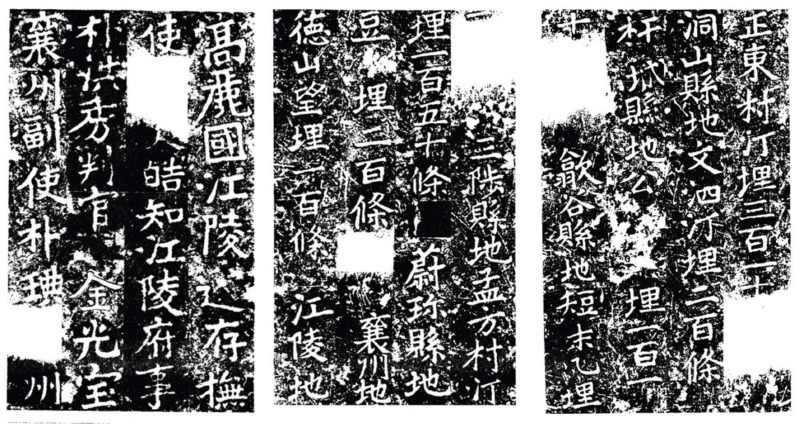 髙麗國江陵 存撫
使 皓知江陵府事
朴洪秀判官 金光宝
襄州副使朴琠 州
三陟縣地孟方村汀
埋一百五十條 蔚珍縣地
豆 埋二百條 襄州地
徳山望埋一百條 江陵地
正東村汀埋三百一十
洞山縣地文泗汀埋二百條
杆城縣地公 埋一百一
十 歙谷縣地短末乙埋